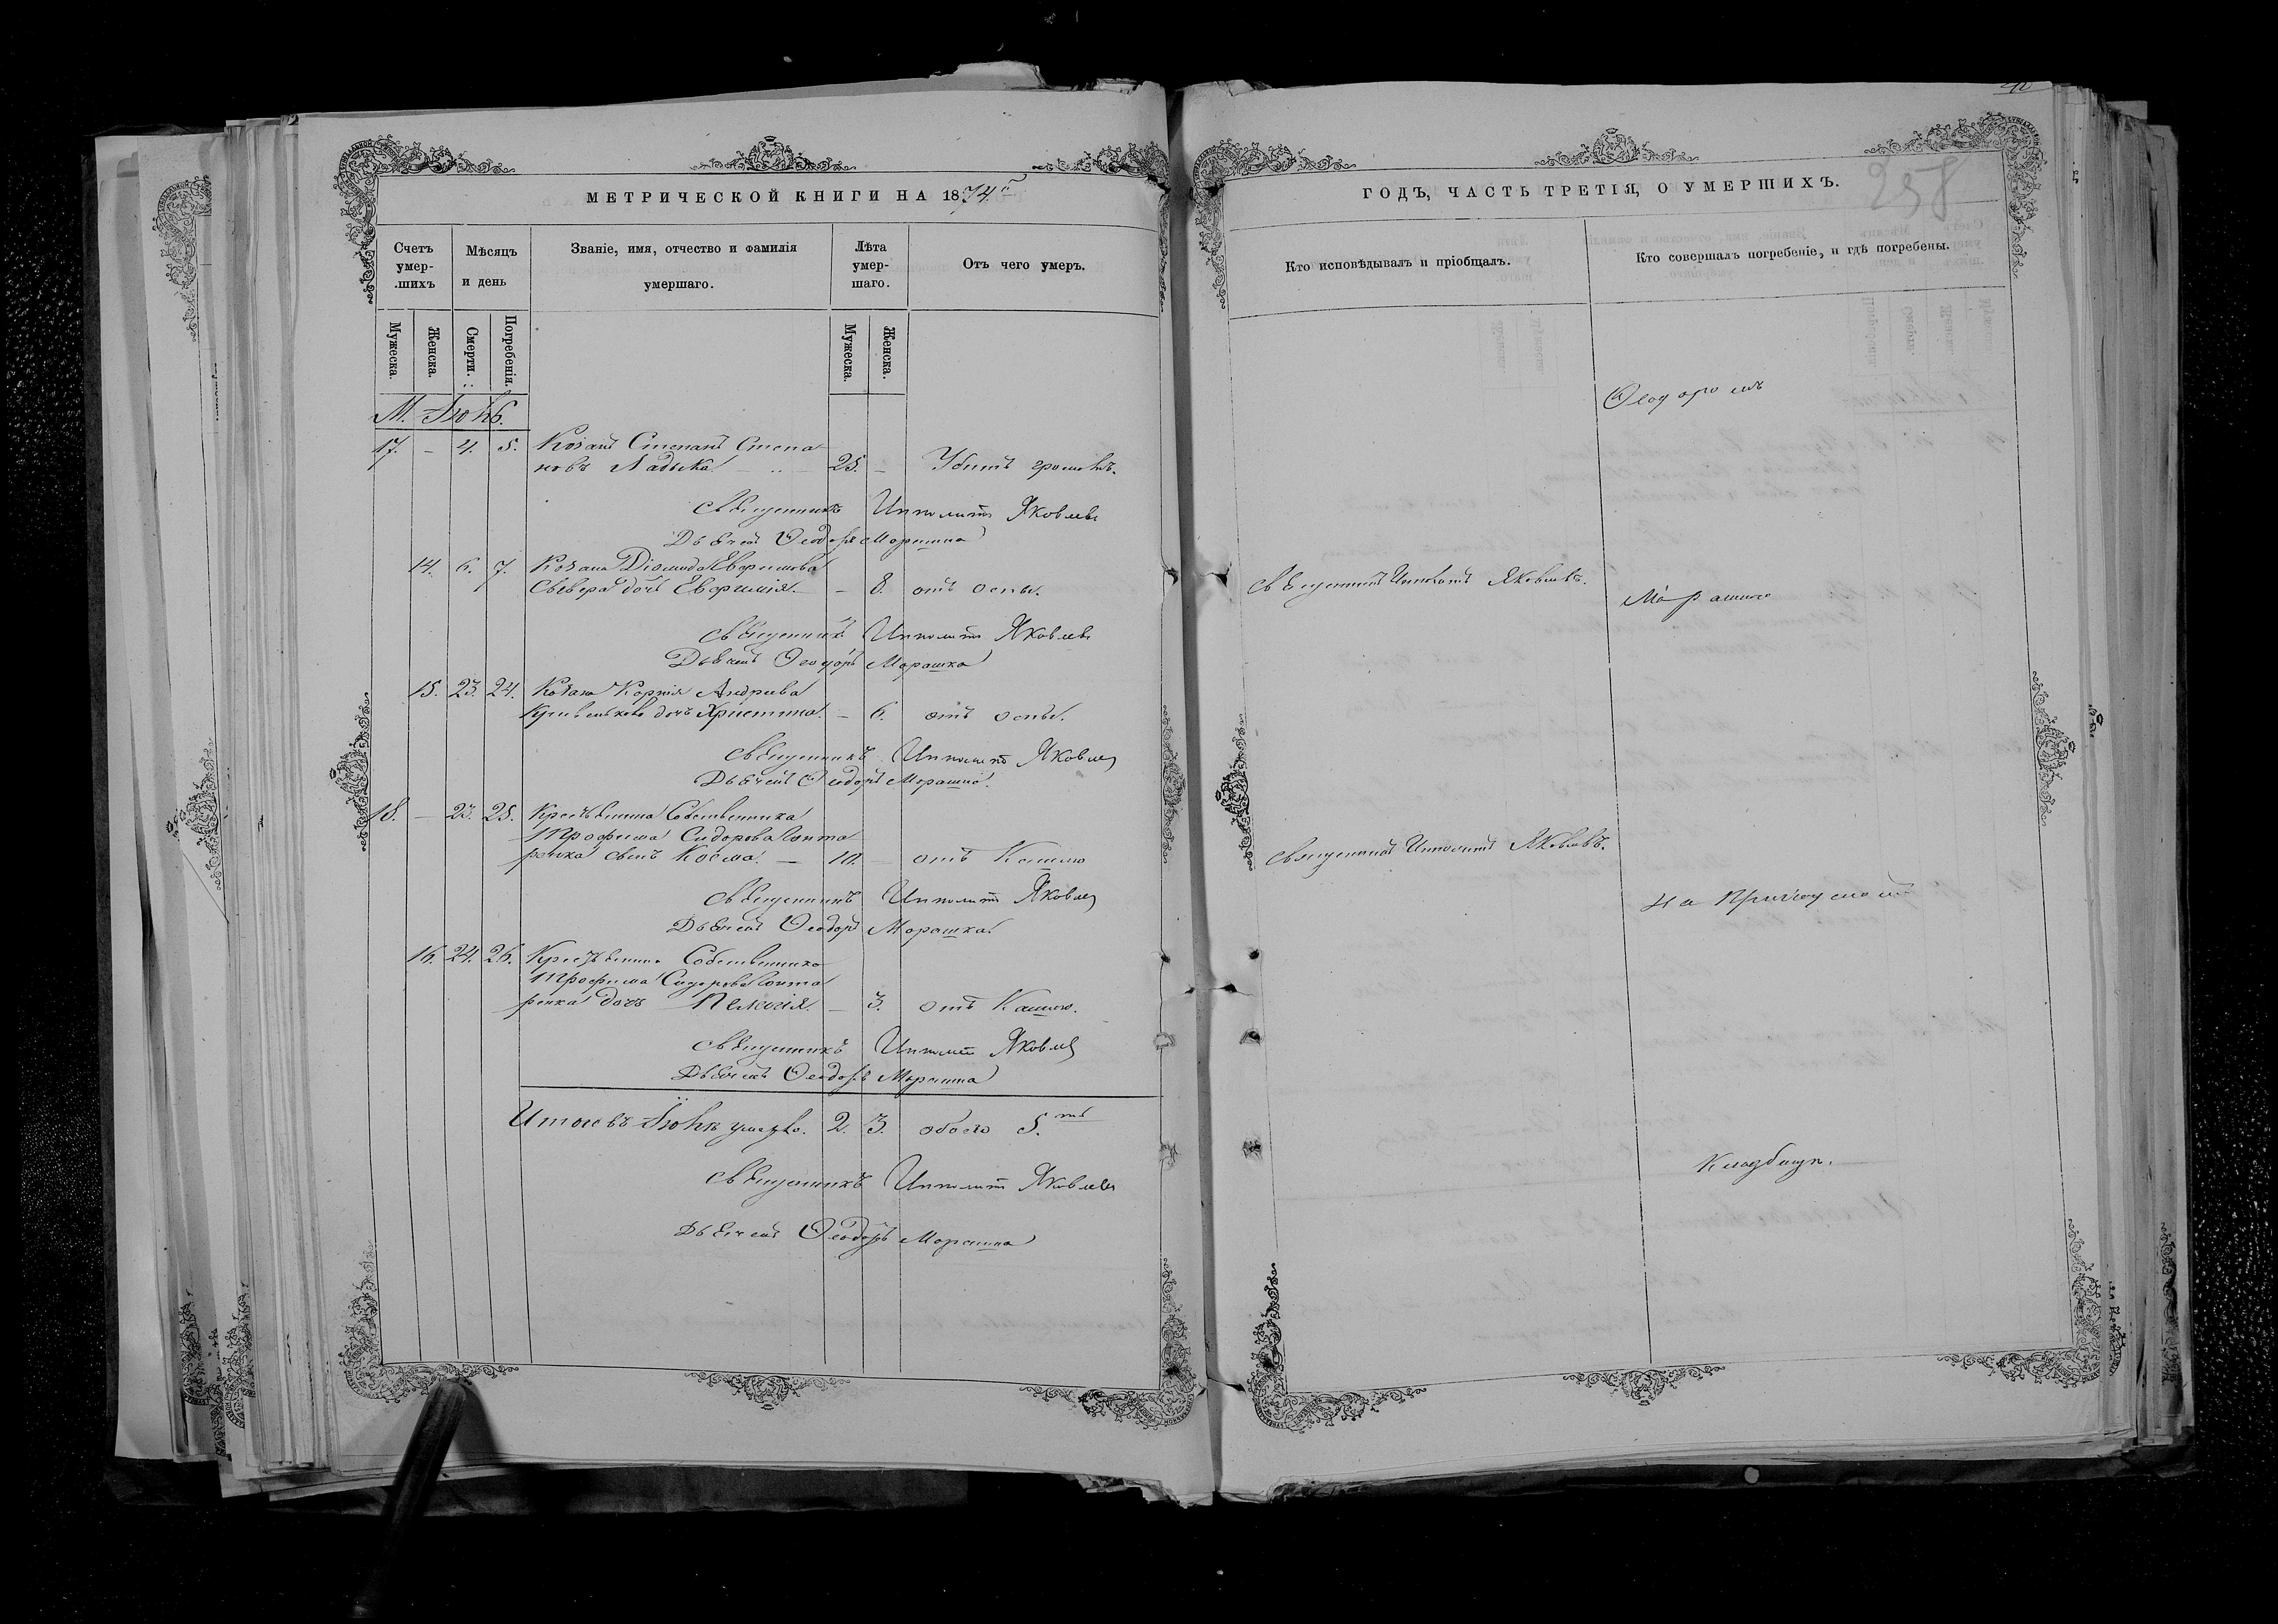 МЕТРИЧЕСКОЙ КНИГИ НА 1874
Счетъ умер-шихъ
Мѣсяцъ и день
Званіе, имя, отчество и фамилія умершаго.
Лѣта умер-шаго.
Отъ чего умеръ.
Мужеска.
Женска.
Смерти.
Погребенія.
Мужеска.
Женска.
М. Іюнь.
17. – 4. 5. Козакъ Степанъ Степа
новъ Ладыка 25. – Убитъ громомъ.
Священникъ Ипполитъ Яковлевъ
Дьячекъ Ѳеодоръ Морашко
14. 6. 7. Козака Діомида Евфимова
дочь Евфимія. – 8. отъ оспы.
Священникъ Ипполитъ Яковлевъ
Дьячекъ Ѳеодоръ Морашко
15. 23. 24. Козака Корнія Андреева
дочь Христина. – 6. отъ оспы.
Священникъ Ипполитъ Яковлевъ
Дьячекъ Ѳеодоръ Морашко.
18. – 23. 25. Крестьянина Собственника
Трофима Сидорова
сынъ Косма. – 10. – отъ Кашлю
Священникъ Ипполитъ Яковлевъ
Дьячекъ Ѳеодоръ Морашко
16. 24. 26. Крестьянина Собственника
Трофима Сидорова
дочь Пелагія. – 3. отъ Кашлю.
Священникъ Ипполитъ Яковлевъ
Дьячекъ Ѳеодоръ Морашко
Итого въ Іюнѣ умерло. 2. 3. обоего 5.
Священникъ Ипполитъ Яковлевъ
Дьячекъ Ѳеодоръ Морашко
ГОДЪ, ЧАСТЬ ТРЕТІЯ, О УМЕРШИХЪ.
258
Кто исповѣдывалъ и пріобщалъ.
Кто совершалъ погребеніе, и гдѣ погребены.
Ѳеодоромъ
Священникъ Ипполитъ Яковлевъ.
Морашко
Священникъ Ипполитъ Яковлевъ.
на Приходском
Кладбищѣ.